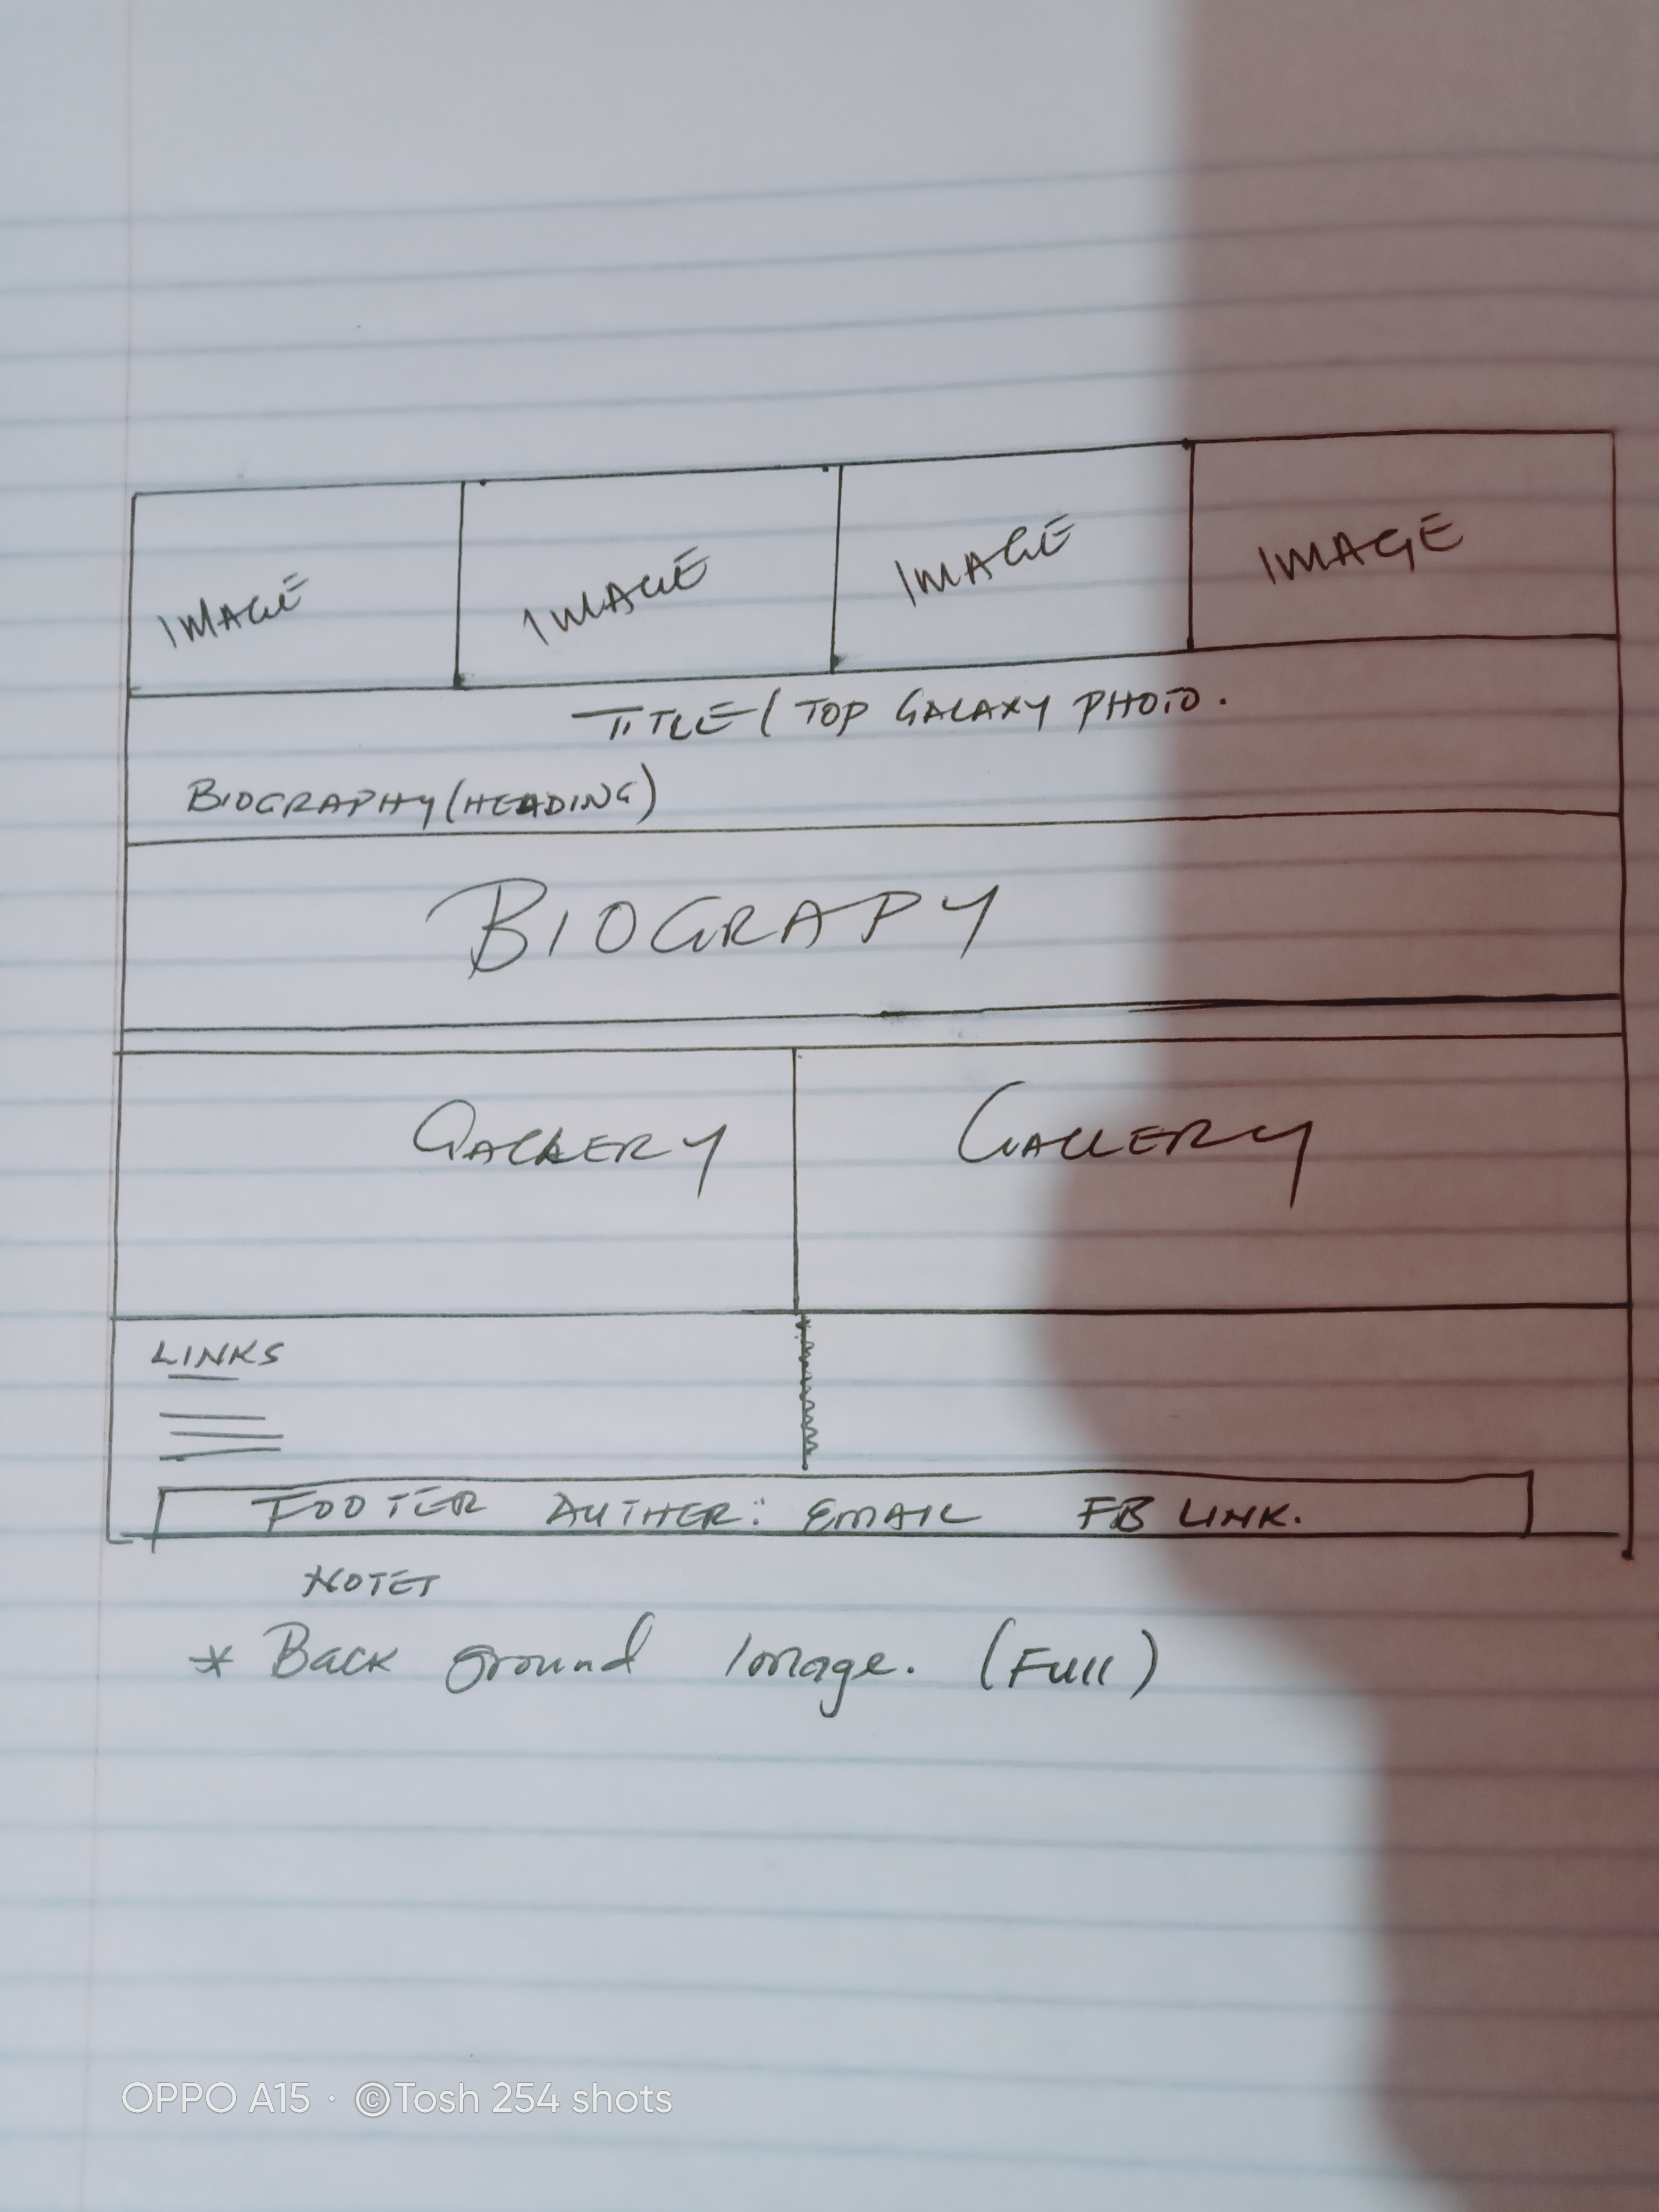 IMAGE IMAGE IMAGE IMAGE
TITLE / TOP GALAXY PHOTO.
BIOGRAPHY (HEADING)
BIOGRAPY
GALLERY GALLERY
LINKS
FOOTER AUTHER: EMAIL FB LINK.
NOTET
* Back ground Image. (Full)
OPPO A15 · ©Tosh 254 shots